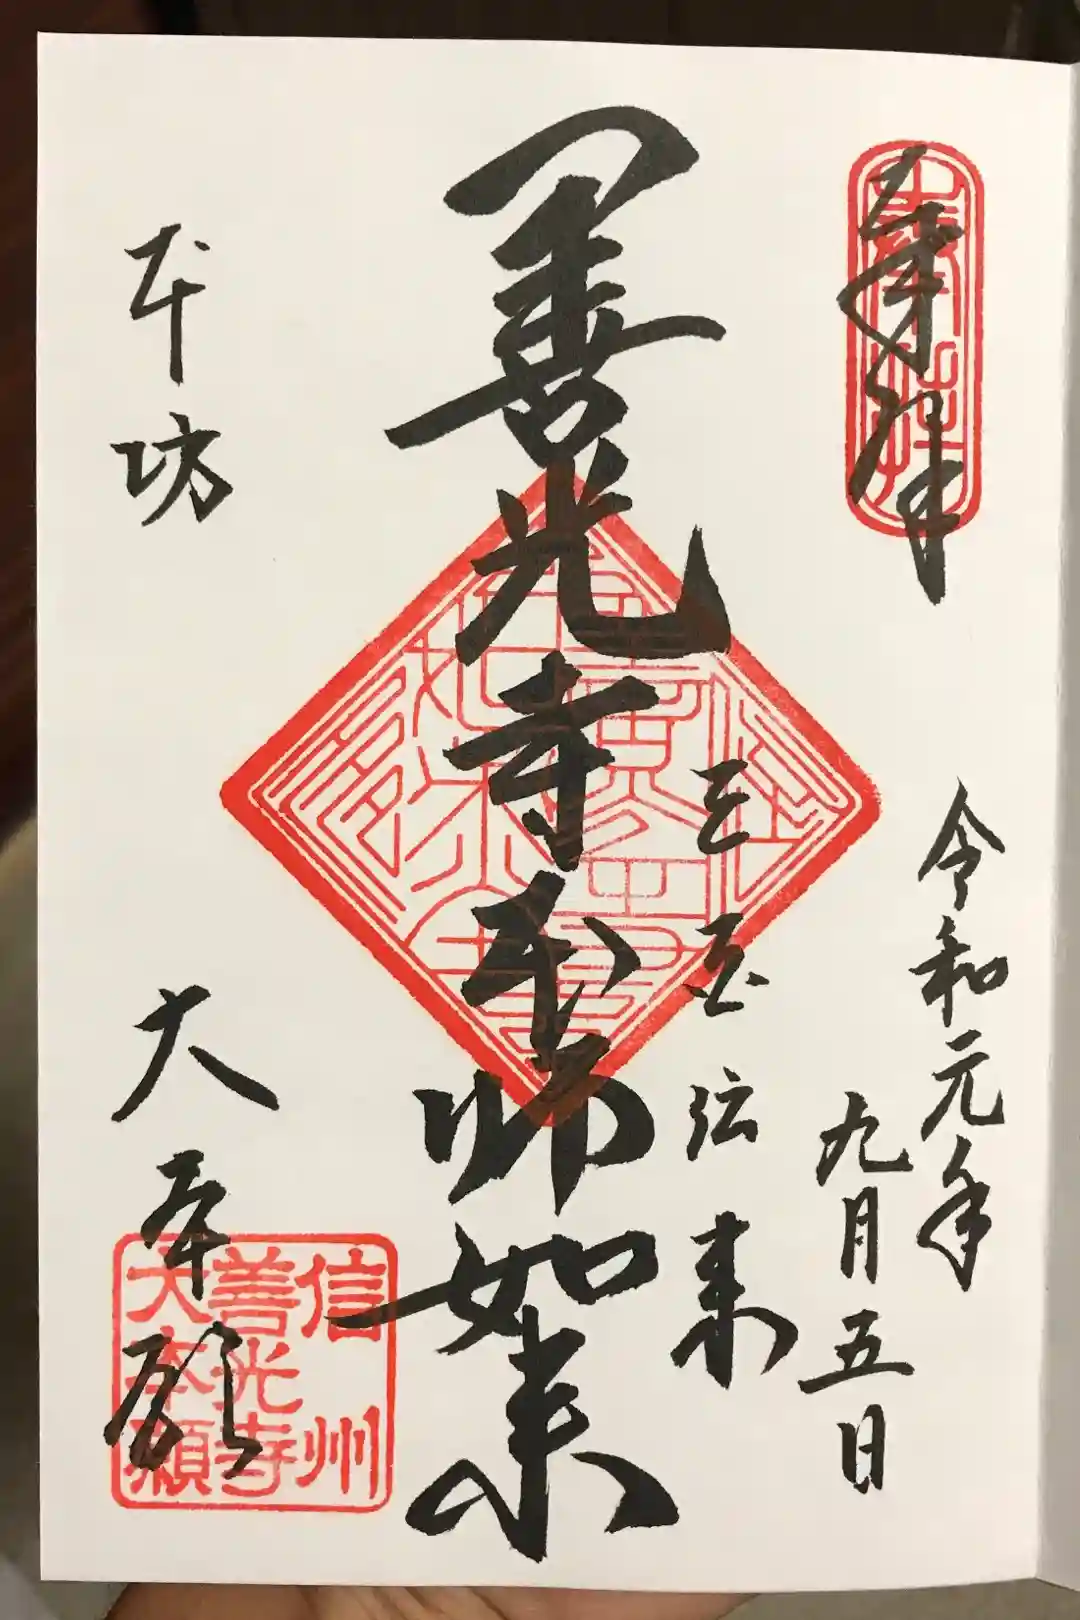 奉拝
奉拝
令和元年
九月五日
三国伝来
善光寺本師如来
本坊
大本願
信州
善光寺
大本願